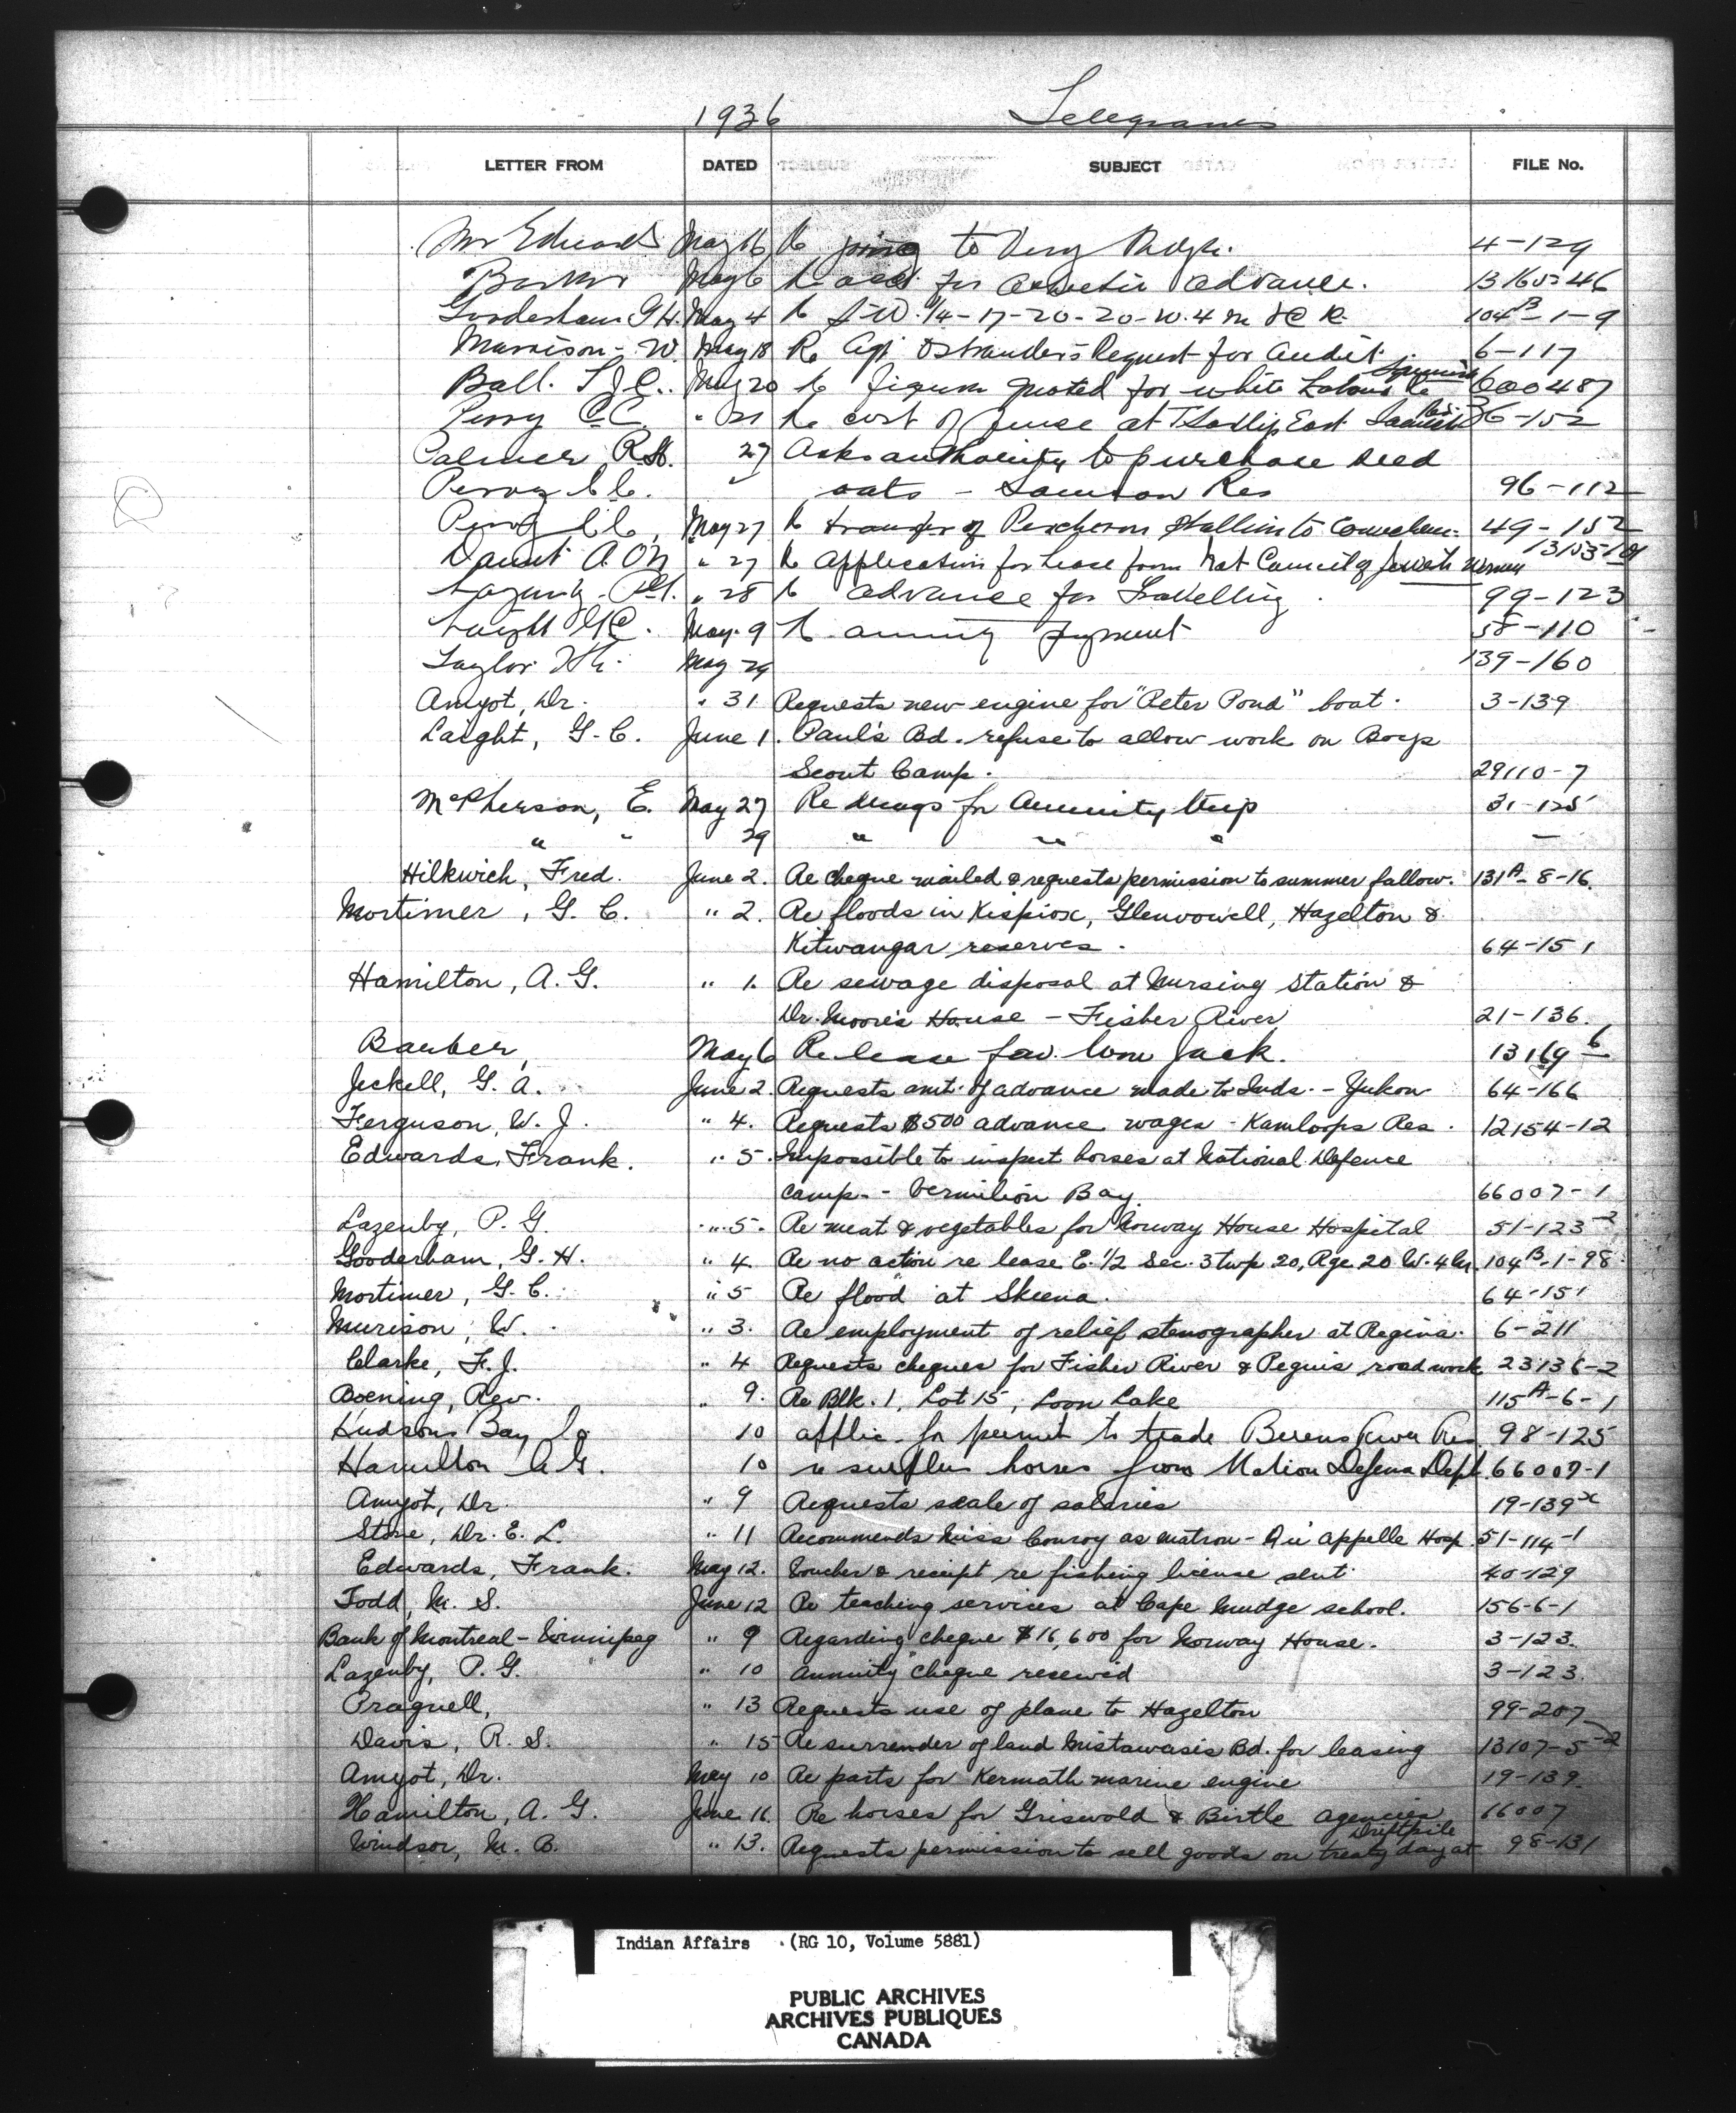 1936 Telegrams
LETTER FROM DATED SUBJECT FILE No.
Mr Edwards May 16 Re going to 4-129
May 6 Re for advance. 13165-46
Gooderham G H. May 4 Re S-W. 1/4-17-20-20-W.4 M 104B-1-9
Murison - W. May 18 Re Agt Ostrander's Request for audit. 6-117
Ball. May 20 Re figures quoted for white Labour Re 600487
Perry C.C. " 21 Re cost of fence at Tsartlip East Saanich Res. 36-152
Palmer R.H. 27 Asks authority to purchase seed
Perry C.C. " oats - Samson Res 96-112
Perry C.C. May 27 Re transfer of Percheron Stallion to Cowichan. 49-152
Daunt A.O'N " 27 Re application for lease from Nat Council of Jewish Women
Lazenby P.G. " 28 Re advance for Travelling. 99-123
Laight G.C. May 9 Re annuity payment 58-110
Taylor May 29 139-160
Amyot, Dr. " 31 Requests new engine for "Peter Pond" boat. 3-139
Laight, G.C. June 1. Paul's Bd. refuse to allow work on Boys
Scout Camp. 29110-7
McPherson, E. May 27 Re drugs for Annuity trip 31-125
" " 29 " " " -
Hilkwich, Fred. June 2. Re cheque mailed & requests permission to summer fallow. 131A-8-16.
Mortimer, G. C. " 2. Re floods in Kispiox, Glenvowell, Hazelton &
Kitwangar reserves. 64-151
Hamilton, A. G. " 1. Re sewage disposal at Nursing Station &
Dr. Moore's House - Fisher River 21-136.
Barber, May 6 Re lease fav. Wm Jack. 13169-6
Jeckell, G. A. June 2. Requests amt. of advance made to Inds. - Yukon 64-166
Ferguson, W. J. " 4. Requests $500 advance wages - Kamloops Res. 12154-12
Edwards, Frank. " 5. Impossible to inspect horses at National Defence
Camp - Vermilion Bay 66007-1
Lazenby, P. G. " 5. Re meat & vegetables for Norway House Hospital 51-123-2
Gooderham, G. H. " 4. Re no action re lease E. 1/2 Sec. 3 twp 20, Rge. 20 W. 4 M. 104B-1-98
Mortimer, G. C. " 5 Re flood at Skeena. 64-151
Murison, W. " 3. Re employment of relief stenographer at Regina. 6-211
Clarke, F. J. " 4 Requests cheques for Fisher River & Peguis road work 23136-2
Boening, Rev. " 9. Re Blk. 1, Lot 15, Loon Lake 115A-6-1
Hudsons Bay Co 10 applic. for permit to trade Berens River Res 98-125
Hamilton A.G. 10 re surplus horses from Nation Defence Dept. 66007-1
Amyot, Dr. " 9 Requests scale of salaries 19-139x
Stone, Dr. E. L. " 11 Recommends Miss Conroy as matron - Qu'Appelle Hosp. 51-114-1
Edwards, Frank. May 12. Voucher & receipt re fishing license sent. 40-129
Todd, M. S. June 12 Re teaching services at Cape Mudge school. 156-6-1
Bank of Montreal - Winnipeg " 9 Regarding cheque $16,600 for Norway House. 3-123.
Lazenby, P. G. " 10 Annuity cheque received 3-123.
Pragnell, " 13 Requests use of plane to Hazelton 99-207
Davis, R. S. " 15 Re surrender of land Mistawasis Bd. for leasing 13107-5-2
Amyot, Dr. May 10 Re parts for Kermath marine engine 19-139.
Hamilton, A. G. June 16. Re horses for Griswold & Birtle agencies 66007
Windsor, M. B. " 13. Requests permission to sell goods on treaty day at Driftpile 98-131
Indian Affairs (RG 10, Volume 5881)
PUBLIC ARCHIVES
ARCHIVES PUBLIQUES
CANADA